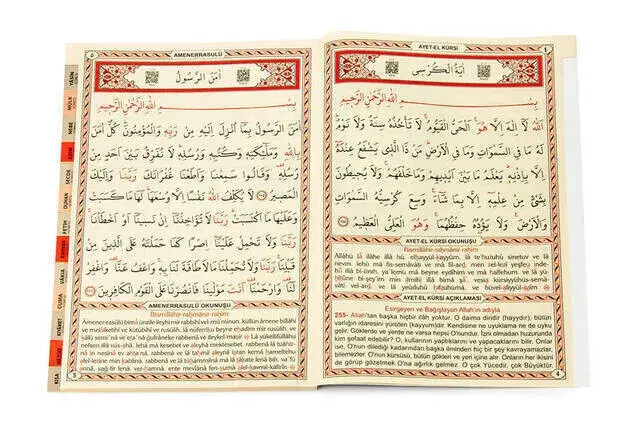 AYET-EL KÜRSİ
اٰيَةُ الْكُرْسِى
بِسْمِ اللّٰهِ الرَّحْمٰنِ الرَّحِيمِ
اَللّٰهُ لَٓا اِلٰهَ اِلَّا هُوَۚ اَلْحَىُّ الْقَيُّومُۚ لَا تَأْخُذُهُ سِنَةٌ وَلَا نَوْمٌۜ
لَهُ مَا فِى السَّمٰوَاتِ وَمَا فِى الْاَرْضِۜ مَنْ ذَا الَّذِى يَشْفَعُ عِنْدَهُٓ
اِلَّا بِاِذْنِهِۜ يَعْلَمُ مَا بَيْنَ اَيْدِيهِمْ وَمَا خَلْفَهُمْۚ وَلَا يُحِيطُونَ
بِشَىْءٍ مِنْ عِلْمِهِٓ اِلَّا بِمَا شَٓاءَۚ وَسِعَ كُرْسِيُّهُ السَّمٰوَاتِ
وَالْاَرْضَۚ وَلَا يَؤُدُهُ حِفْظُهُمَاۚ وَهُوَ الْعَلِىُّ الْعَظِيمُ
AYET-EL KÜRSİ OKUNUŞU
Bismillâhir-rahmânir-rahîm
Allâhü lâ ilâhe illâ hû, elhayyül-kayyûm, lâ te'huzuhû sinetuv ve lâ
nevm, lehû mâ fis-semâvâti ve mâ fil-ard, men zel-lezî yeşfeu ınde-
hû illâ bi-iznih, ya'lemu mâ beyne eydîhim ve mâ halfehum, ve lâ yü-
hîtûne bi-şey'im min ılmihî illâ bimâ şâe, vesia kürsiyyühüs-semâvâti
vel-ard, ve lâ yeûduhû hıfzuhumâ, ve hüvel-aliyyül-azîm
AYET-EL KÜRSİ AÇIKLAMASI
Esirgeyen ve Bağışlayan Allah'ın adıyla
255- Allah'tan başka hiçbir ilâh yoktur. O daima diridir (hayydır), bütün
varlığın idaresini yürüten (kayyum)dır. Kendisine ne uyuklama ne de uyku
gelir. Göklerde ve yerde ne varsa hepsi O'nundur. İzni olmadan huzurunda
kim şefaat edebilir? O, kullarının yaptıklarını ve yapacaklarını bilir. Onlar
ise, O'nun dilediği kadarından başka ilminden hiç bir şey kavrayamazlar,
bilemezler. O'nun kürsüsü, bütün gökleri ve yeri içine alır. Onların her ikisini
de görüp gözetmek O'na ağırlık gelmez. O çok Yücedir, çok Büyüktür.
4
٥
AMENERRASULÜ
اٰمَنَ الرَّسُولُ
بِسْمِ اللّٰهِ الرَّحْمٰنِ الرَّحِيمِ
اٰمَنَ الرَّسُولُ بِمَٓا اُنْزِلَ اِلَيْهِ مِنْ رَبِّهِ وَالْمُؤْمِنُونَۜ كُلٌّ اٰمَنَ
بِاللّٰهِ وَمَلٰٓئِكَتِهِ وَكُتُبِهِ وَرُسُلِهِۜ لَا نُفَرِّقُ بَيْنَ اَحَدٍ مِنْ
رُسُلِهِ۠ وَقَالُوا سَمِعْنَا وَاَطَعْنَا غُفْرَانَكَ رَبَّنَا وَاِلَيْكَ
الْمَصِيرُ ﴿٢٨٥﴾ لَا يُكَلِّفُ اللّٰهُ نَفْسًا اِلَّا وُسْعَهَاۜ لَهَا مَا كَسَبَتْ
وَعَلَيْهَا مَا اكْتَسَبَتْۜ رَبَّنَا لَا تُؤَاخِذْنَٓا اِنْ نَسِينَٓا اَوْ اَخْطَأْنَاۚ
رَبَّنَا وَلَا تَحْمِلْ عَلَيْنَٓا اِصْرًا كَمَا حَمَلْتَهُ عَلَى الَّذِينَ مِنْ
قَبْلِنَاۚ رَبَّنَا وَلَا تُحَمِّلْنَا مَا لَا طَاقَةَ لَنَا بِهِۚ وَاعْفُ عَنَّا۠ وَاغْفِرْ
لَنَا۠ وَارْحَمْنَا۠ اَنْتَ مَوْلٰينَا فَانْصُرْنَا عَلَى الْقَوْمِ الْكَافِرِينَ
AMENERRASULÜ OKUNUŞU
Bismillâhir-rahmânir-rahîm
Âmener-rasûlü bimâ ünzile ileyhi mir-rabbihî vel-mü'minun, küllün âmene billâhi
ve melâiketihî ve kütübihî ve rusülih, lâ nüferriku beyne ehadim mir-rusülih, ve
kâlû semi'nâ ve eta'nâ ğufrâneke rabbenâ ve ileykel-masîr. Lâ yükellifüllâhu
nefsen illâ vüs-ahâ, lehâ mâ kesebet ve aleyhâ mektesebet, rabbenâ lâ tüâhız-
nâ in nesînâ ev ahta'nâ, rabbenâ ve lâ tahmil aleynâ ısran kemâ hameltehu
alel-lezîne min kablinâ, rabbenâ ve lâ tühammilnâ mâ lâ tâkate lenâ bih, va'fü
annâ, vağ-fir lenâ, ver-hamnâ, ente mevlânâ fen-surnâ alel-kavmil-kâfirîn
5
YÂSİN
MÜLK
NEBE
DUHAN
SECDE
FETİH
RAHMAN
VÂKIA
CUMA
KIYAMET
KISA